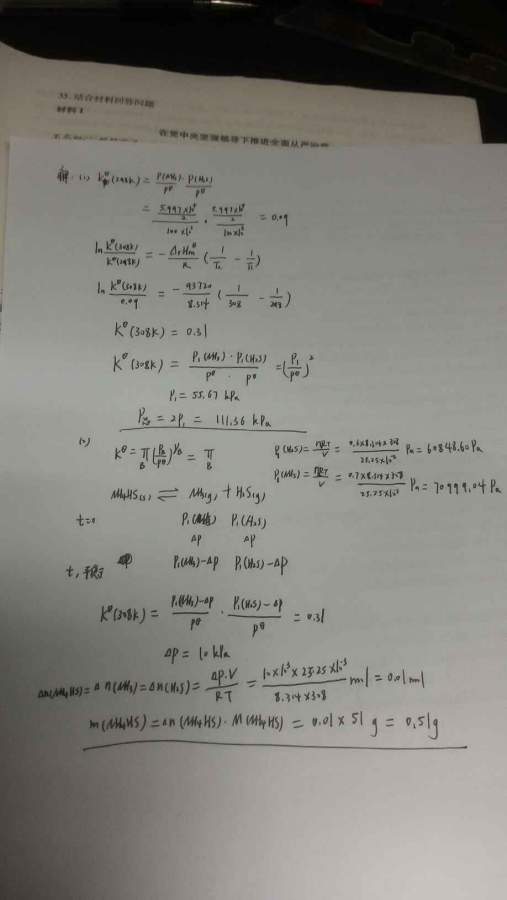 33. 结合材料回答问题
材料1
解: (1) K^θ(298K) = P(NH₃)/P^θ · P(H₂S)/P^θ
= (5.997×10⁴/2)/(100×10³) · (5.997×10⁴/2)/(100×10³) = 0.09
ln K^θ(308K)/K^θ(298K) = -ΔrHm^θ/R (1/T₂ - 1/T₁)
ln K^θ(308K)/0.09 = -93720/8.314 (1/308 - 1/298)
K^θ(308K) = 0.31
K^θ(308K) = P₁(NH₃)·P₁(H₂S)/P^θ·P^θ = (P₁/P^θ)²
P₁ = 55.67 kPa
P总 = 2P₁ = 111.36 kPa
(2) K^θ = π_B (P_B/P^θ)^νB = π_B
P₁(H₂S) = nRT/V = 0.6×8.314×308/25.25×10⁻³ Pa = 60848.60 Pa
P₁(NH₃) = nRT/V = 0.7×8.314×308/25.25×10⁻³ Pa = 70999.04 Pa
NH₄HS(s) ⇌ NH₃(g) + H₂S(g)
t=0 P₁(NH₃) P₁(H₂S)
ΔP ΔP
t, 平衡 P₁(NH₃)-ΔP P₁(H₂S)-ΔP
K^θ(308K) = P₁(NH₃)-ΔP/P^θ · P₁(H₂S)-ΔP/P^θ = 0.31
ΔP = 10 kPa
Δn(NH₄HS) = Δn(NH₃) = Δn(H₂S) = ΔP·V/RT = 10×10³×25.25×10⁻³/8.314×308 mol = 0.01 mol
m(NH₄HS) = Δn(NH₄HS)·M(NH₄HS) = 0.01 × 51 g = 0.51 g